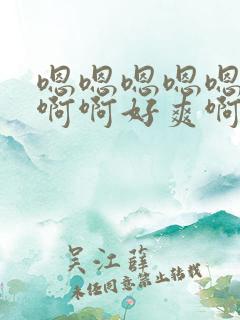 嗯嗯嗯嗯嗯
啊啊好爽啊
吴江薛
未经同意禁止转载